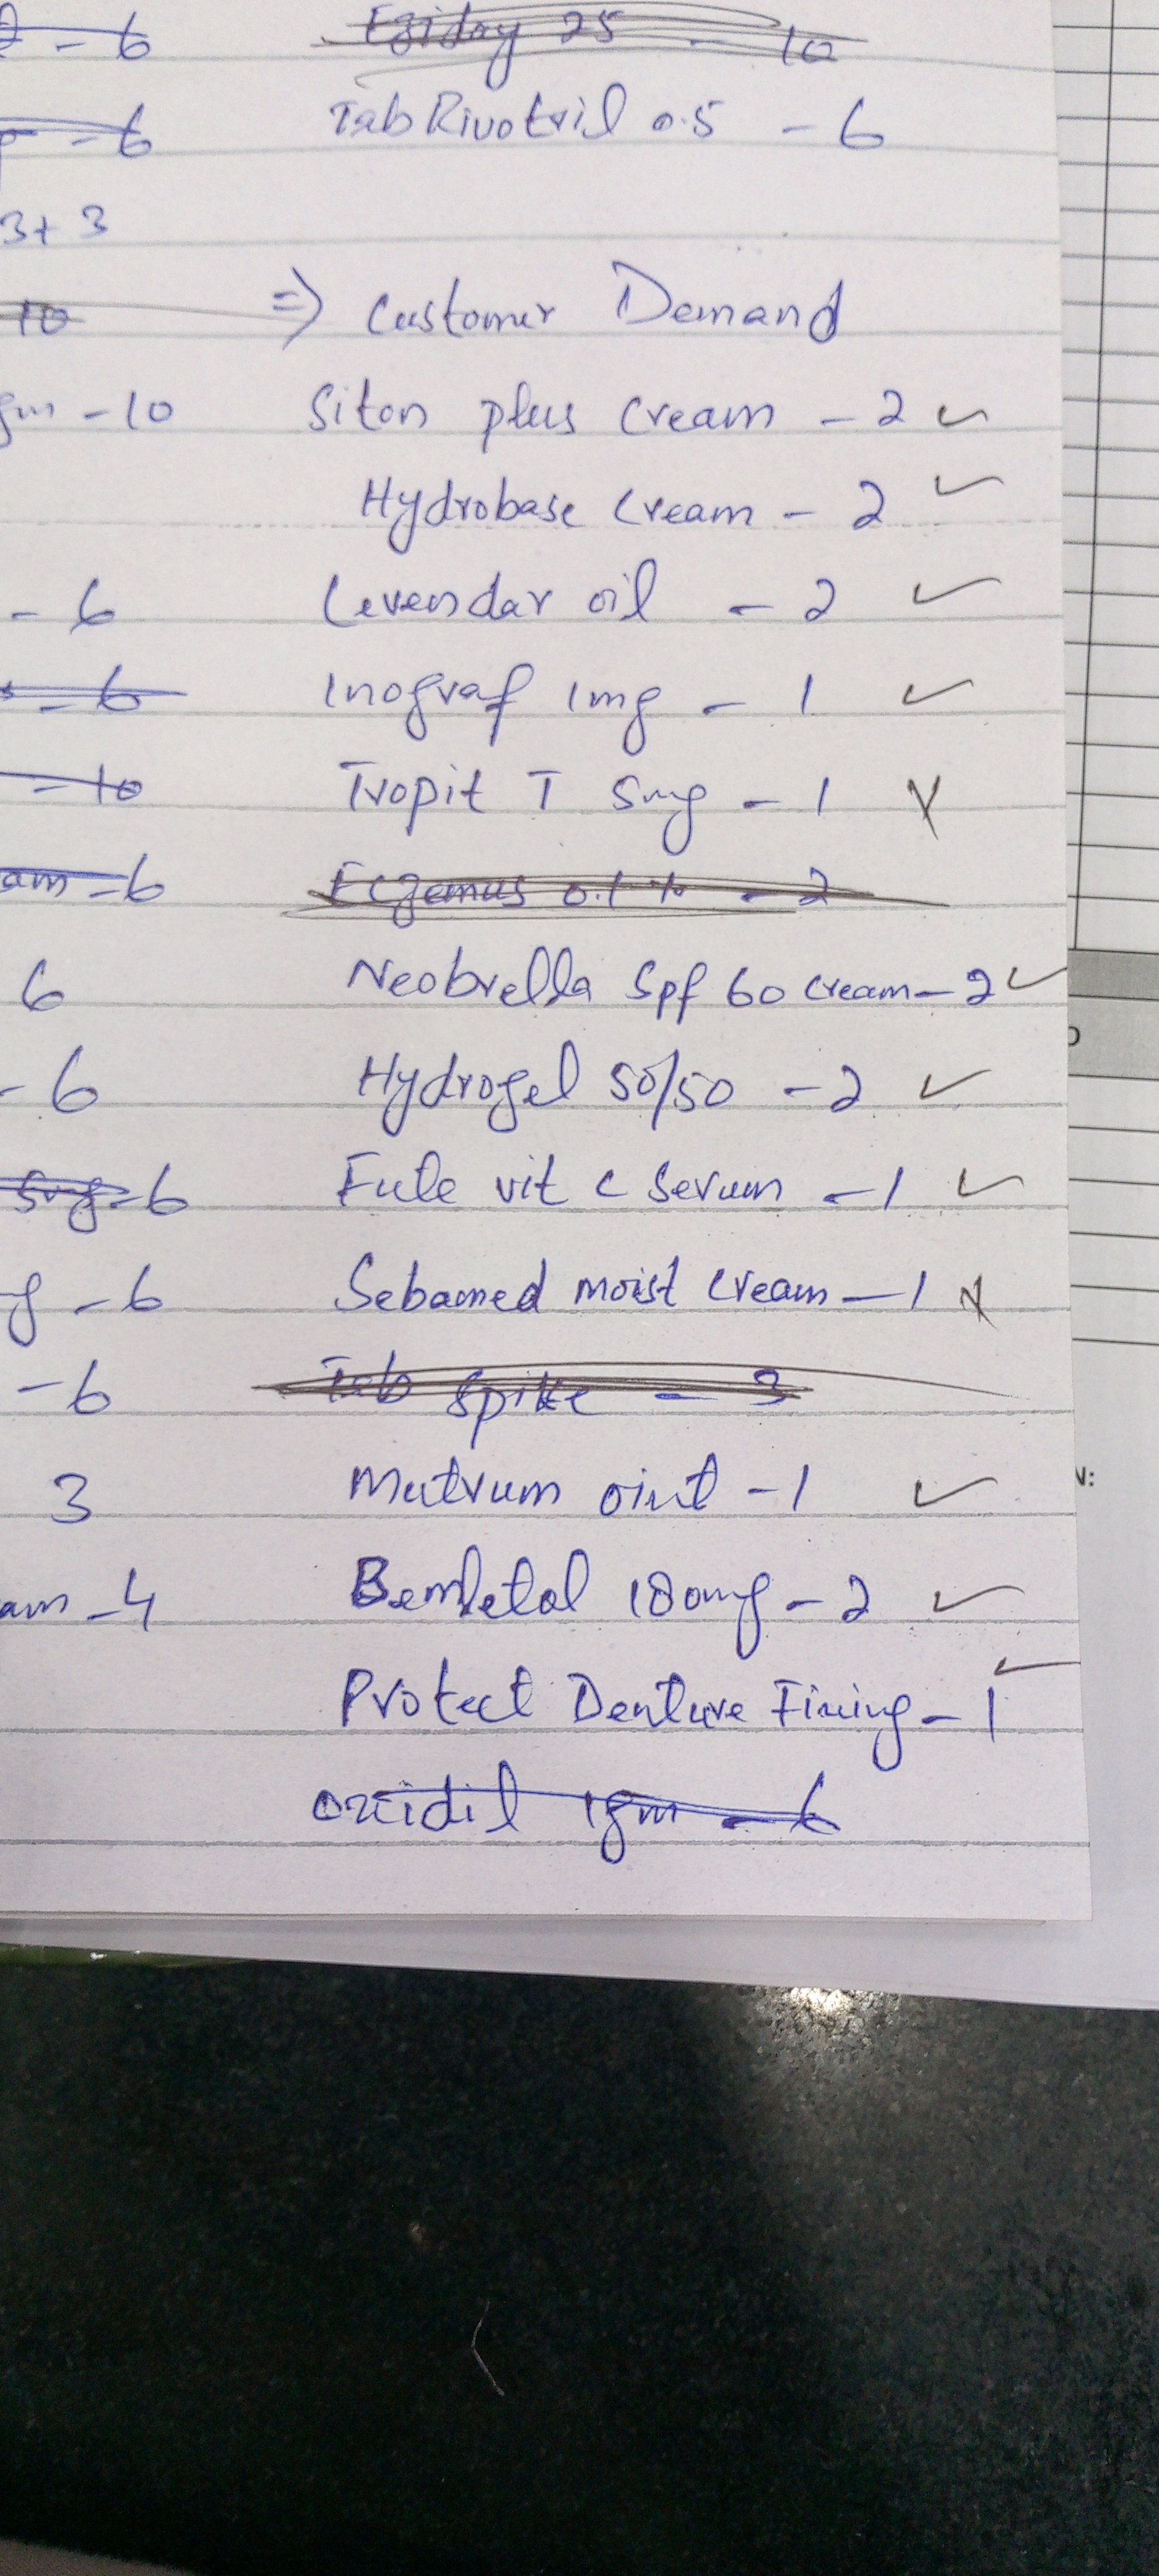 - 6 Eziday 25 - 10
- 6 Tab Rivotril 0.5 - 6
3+3
10 => Customer Demand
gm - 10 Siton plus cream - 2 ✓
Hydrobase cream - 2 ✓
- 6 Levendar oil - 2 ✓
- 6 Inograf 1mg - 1 ✓
- 10 Tropit T 5mg - 1 X
am - 6 Eczemus 0.1% - 2
6 Neobrella Spf 60 cream - 2 ✓
- 6 Hydrogel 50/50 - 2 ✓
5mg - 6 vit c Serum - 1 ✓
g - 6 Sebamed moist cream - 1 X
- 6 Tab Spike - 3
3 oint - 1 ✓
am - 4 180mg - 2 ✓
Protect Denture Fixing - 1 ✓
oxidil 1gm - 6
N: